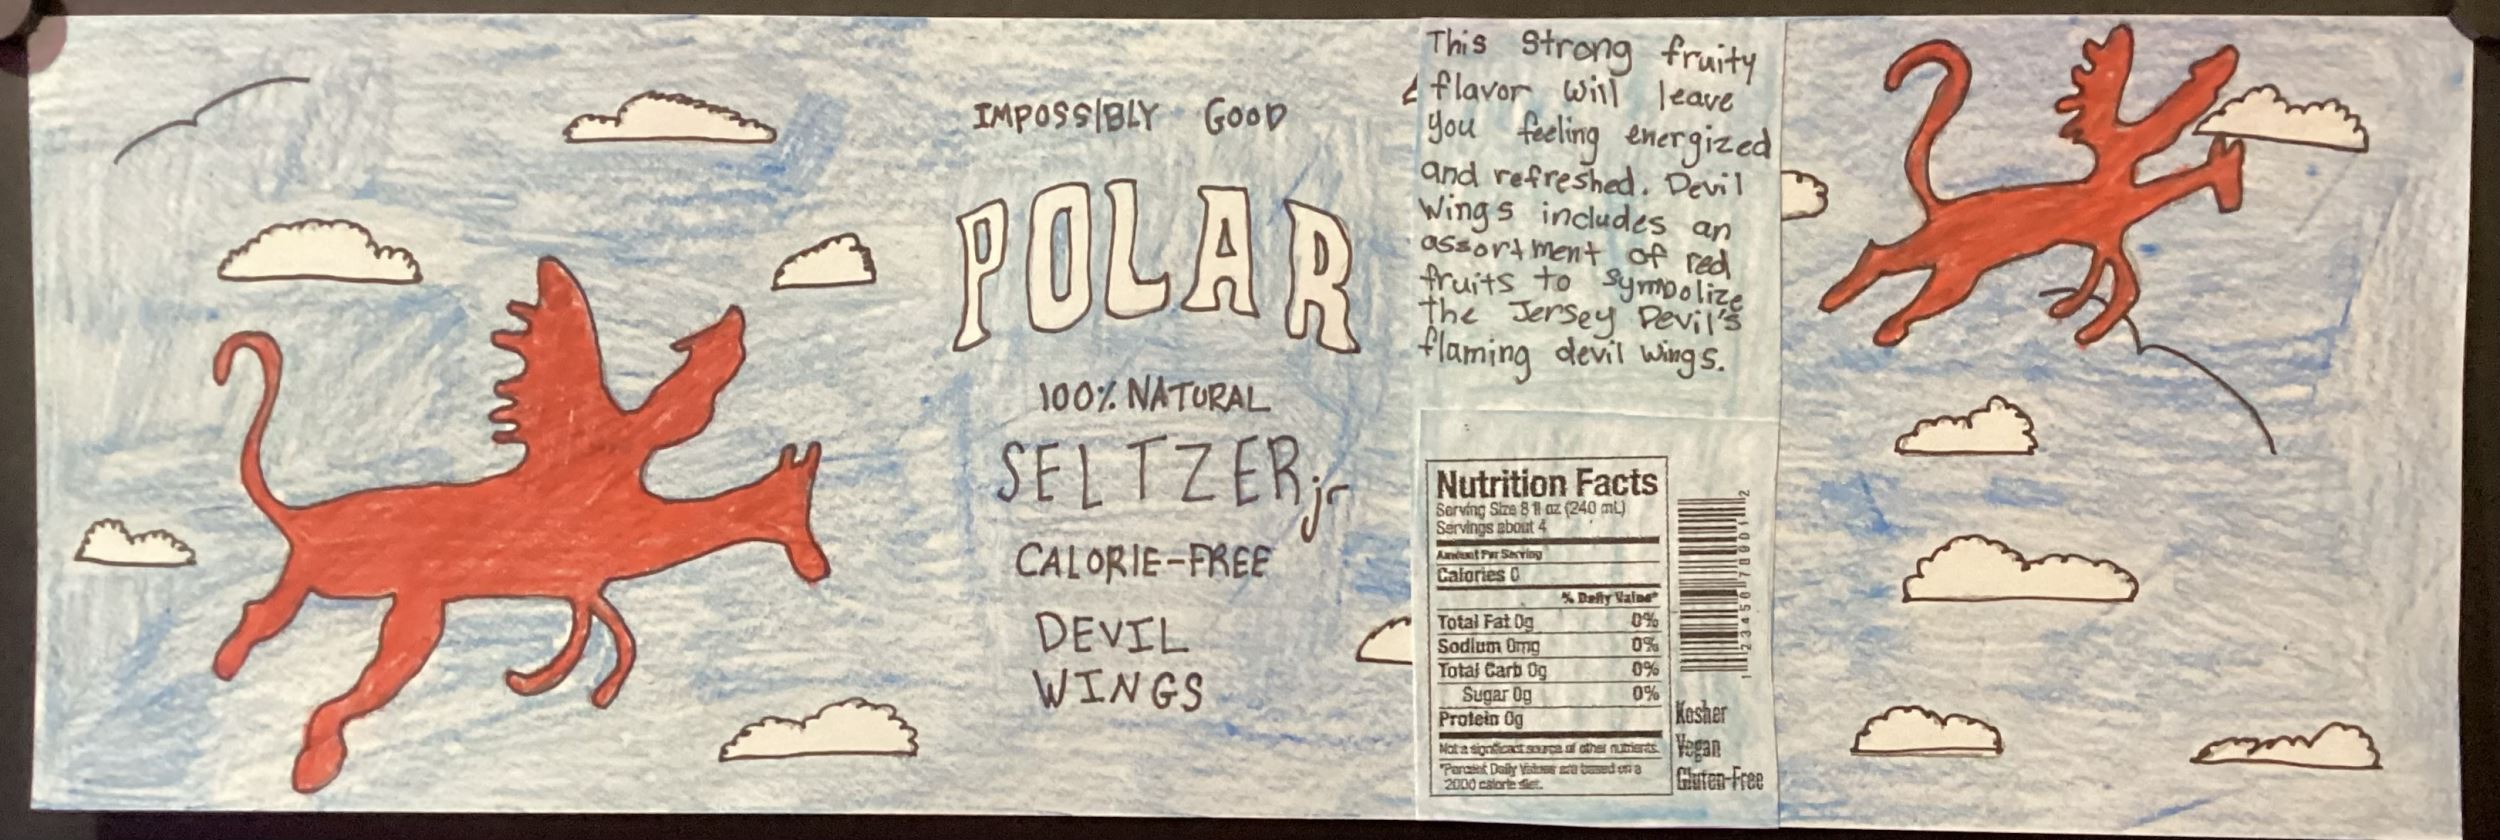 IMPOSSIBLY GOOD
POLAR
100% NATURAL
SELTZER jr
CALORIE-FREE
DEVIL
WINGS
This strong fruity
flavor will leave
you feeling energized
and refreshed. Devil
Wings includes an
assortment of red
fruits to symbolize
the Jersey Devil's
flaming devil wings.
Nutrition Facts
Serving Size 8 fl oz (240 mL)
Servings about 4
Amount Per Serving
Calories 0
% Daily Value*
Total Fat 0g 0%
Sodium 0mg 0%
Total Carb 0g 0%
Sugar 0g 0%
Protein 0g
Not a significant source of other nutrients.
*Percent Daily Values are based on a
2000 calorie diet.
1 23456 78901 2
Kosher
Vegan
Gluten-Free